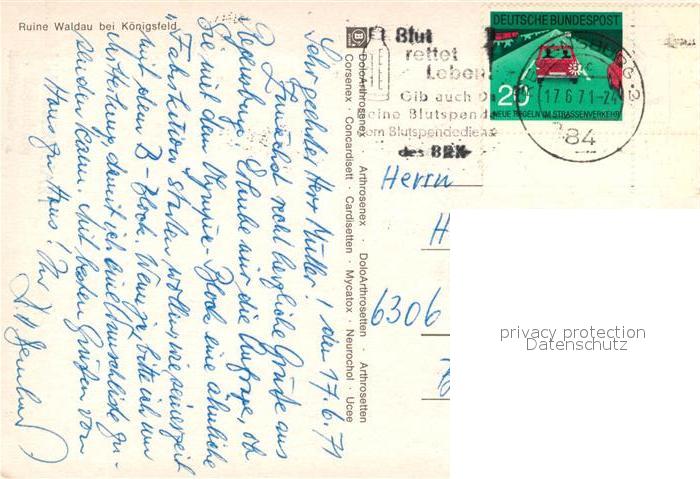 Ruine Waldau bei Königsfeld
Sehr geehrter Herr Müller! den 17.6.71
Zunächst recht herzliche Grüße aus
Regensburg. Erlaube mir die Anfrage, ob
Sie mit dem Olympia-Block eine ähnliche
"Tauschaktion" starten, wie seinerzeit
mit dem B-Block. Wenn ja, bitte ich um
Mitteilung, damit ich eine Tauschliste zu-
senden kann. Mit besten Grüßen von
Haus zu Haus! Ihr
DoloArthrosenex · Arthrosenex · DoloArthrosetten · Arthrosetten
Corsenex · Concardisett · Cardisetten · Mycatox · Neurochol · Ucee
Blut
rettet
Leben
Gib auch Du
eine Blutspende
dem Blutspendedienst
des BRK
DEUTSCHE BUNDESPOST
20
NEUE REGELN IM STRASSENVERKEHR
17.6.71-24
84
Herrn
H
6306
privacy protection
Datenschutz